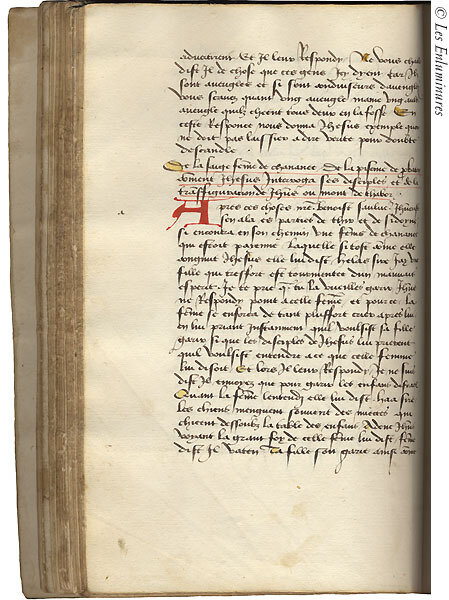 advertirent Et Il leur Respondy Ne vous chau
dist Il de chose que ces gens Icy dyent Car Ilz
sont aveuglez et si sont conduiseurs daveuglez
vous scavez quant ung aveugle maine ung aut
aveugle quilz chieent tous deux en la fosse En
ceste Responce nous donna Jhesus exemple que
ne doit pas laissier a dire verite pour doubte
descandle
De la saige feme de chananee De la piscine de
coment Jhesus Interroga ses disciples et de la
transfiguration de Jhus ou mont de thabor
Apres ces choses nre benoist saulveur Jhesus
sen ala es parties de thir et de sidonie
si encontra en son chemin une feme de chananee
qui estoit paienne Laquelle si tost come elle
congnut Jhesus elle luy dist helas sire Jay une
fille qui tresfort est tourmentee dun mauvait
esperit Je te prie que tu la vueilles garir Jhus
ne Respondy point a celle feme et pource la
feme se enforca de tant plusfort crier apres luy
en luy priant Instanment quil voulsist sa fille
garir si que les disciples de Jhesus luy prierent
quil voulsist entendre a ce que celle femme
luy disoit Et lors Il leur Respondy Je ne suis
dist Il envoyez que pour garir les enfans disrael
Quant la feme lentendy elle luy dist haa sire
les chiens menguent souvent des miettes qui
chieent dessoubz la table des enfans Adonc Jhus
voyant la grant foy de celle feme luy dist feme
dist Il vaten Ta fille soit garie ainsi come
© Les Enluminures